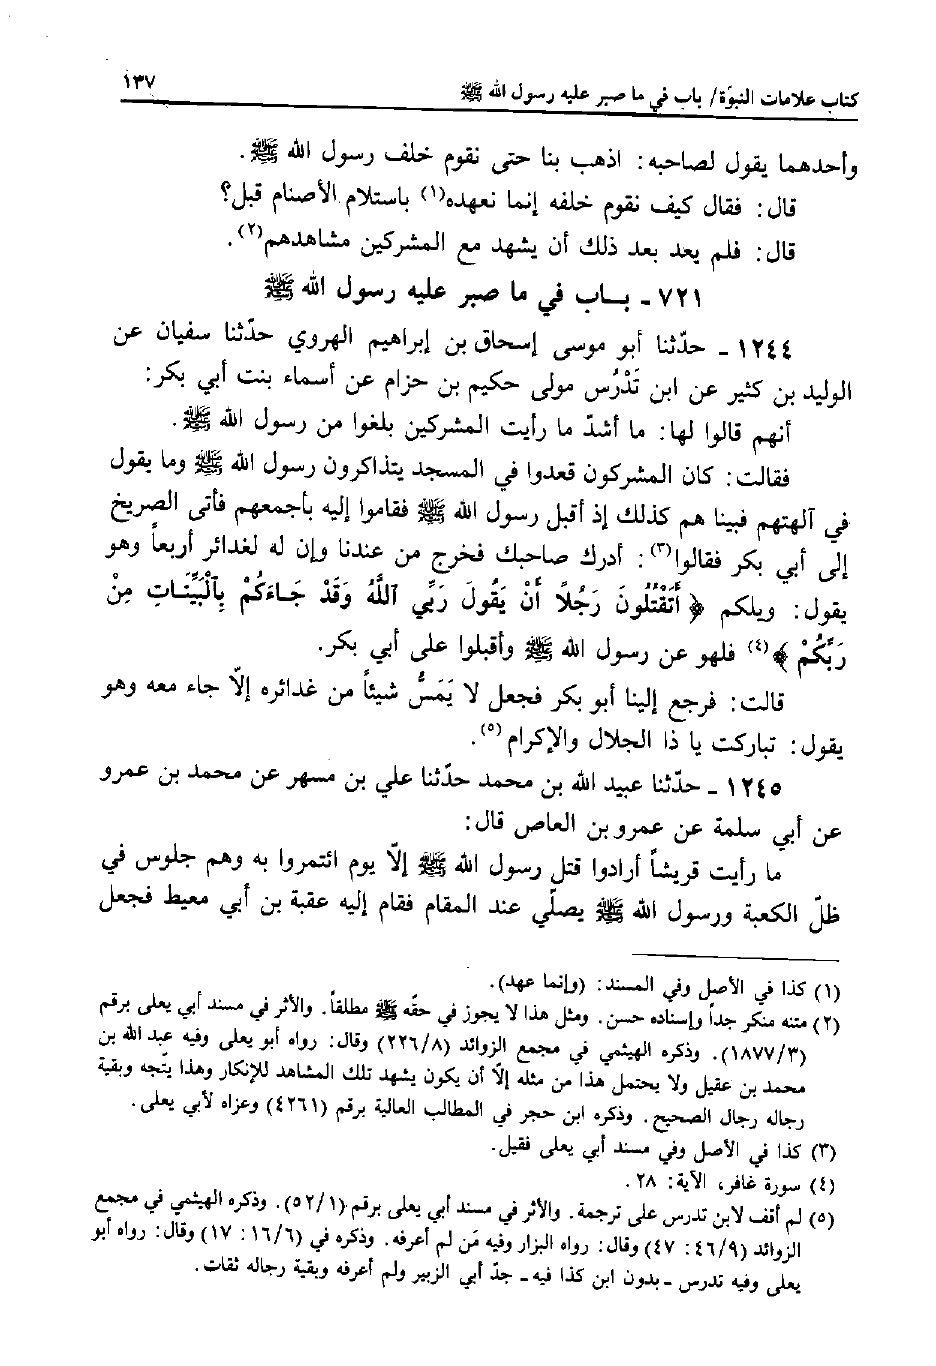 كتاب علامات النبوّة/ باب في ما صبر عليه رسول الله ﷺ ١٣٧
وأحدهما يقول لصاحبه: اذهب بنا حتى نقوم خلف رسول الله ﷺ.
قال: فقال كيف نقوم خلفه إنما نعهده(١) باستلام الأصنام قبل؟
قال: فلم يعد بعد ذلك أن يشهد مع المشركين مشاهدهم(٢).
٧٢١ ـ بـاب في ما صبر عليه رسول الله ﷺ
١٢٤٤ ـ حدّثنا أبو موسى إسحاق بن إبراهيم الهروي حدّثنا سفيان عن
الوليد بن كثير عن ابن تَدْرُس مولى حكيم بن حزام عن أسماء بنت أبي بكر:
أنهم قالوا لها: ما أشدّ ما رأيت المشركين بلغوا من رسول الله ﷺ.
فقالت: كان المشركون قعدوا في المسجد يتذاكرون رسول الله ﷺ وما يقول
في آلهتهم فبينا هم كذلك إذ أقبل رسول الله ﷺ فقاموا إليه بأجمعهم فأتى الصريخ
إلى أبي بكر فقالوا(٣): أدرك صاحبك فخرج من عندنا وإن له لغدائر أربعاً وهو
يقول: ويلكم ﴿ أَتَقْتُلُونَ رَجُلاً أَنْ يَقُولَ رَبِّي ٱللَّهُ وَقَدْ جَاءَكُمْ بِٱلْبَيِّنَاتِ مِنْ
رَبَّكُمْ ﴾(٤) فلهو عن رسول الله ﷺ وأقبلوا على أبي بكر.
قالت: فرجع إلينا أبو بكر فجعل لا يَمَسُّ شيئاً من غدائره إلّا جاء معه وهو
يقول: تباركت يا ذا الجلال والإكرام(٥).
١٢٤٥ ـ حدّثنا عبيد الله بن محمد حدّثنا علي بن مسهر عن محمد بن عمرو
عن أبي سلمة عن عمرو بن العاص قال:
ما رأيت قريشاً أرادوا قتل رسول الله ﷺ إلّا يوم ائتمروا به وهم جلوس في
ظلّ الكعبة ورسول الله ﷺ يصلّي عند المقام فقام إليه عقبة بن أبي معيط فجعل
(١) كذا في الأصل وفي المسند: (وإنما عهد).
(٢) متنه منكر جداً وإسناده حسن. ومثل هذا لا يجوز في حقّه ﷺ مطلقاً. والأثر في مسند أبي يعلى برقم
(١٨٧٧/٣). وذكره الهيثمي في مجمع الزوائد (٢٢٦/٨) وقال: رواه أبو يعلى وفيه عبد الله بن
محمد بن عقيل ولا يحتمل هذا من مثله إلّا أن يكون يشهد تلك المشاهد للإنكار وهذا يتّجه وبقية
رجاله رجال الصحيح. وذكره ابن حجر في المطالب العالية برقم (٤٢٦١) وعزاه لأبي يعلى.
(٣) كذا في الأصل وفي مسند أبي يعلى فقيل.
(٤) سورة غافر، الآية: ٢٨.
(٥) لم أقف لابن تدرس على ترجمة. والأثر في مسند أبي يعلى برقم (٥٢/١). وذكره الهيثمي في مجمع
الزوائد (٤٦/٩: ٤٧) وقال: رواه البزار وفيه مَن لم أعرفه. وذكره في (١٦/٦: ١٧) وقال: رواه أبو
يعلى وفيه تدرس ـ بدون ابن كذا فيه ـ جدّ أبي الزبير ولم أعرفه وبقية رجاله ثقات.